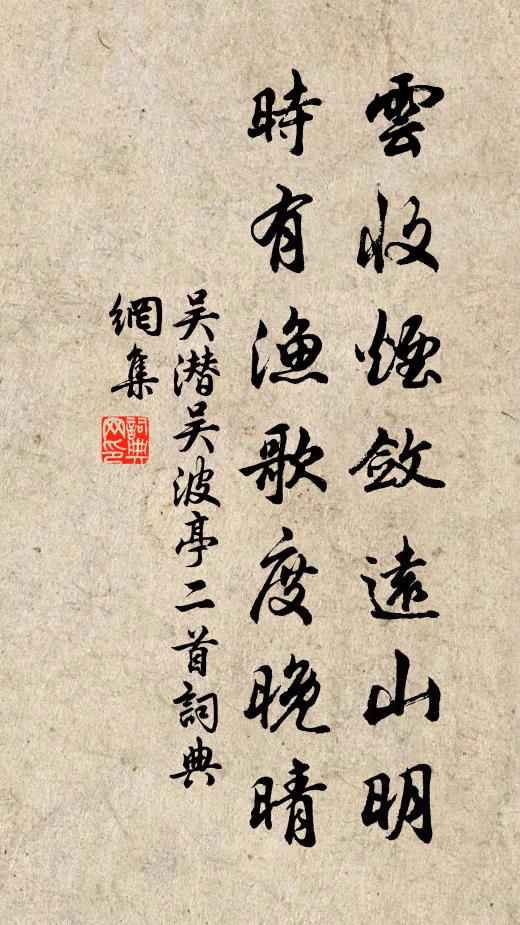 雲收煙斂遠山明
時有漁歌度晚晴
吴潜吴波亭二首詞典
網集
詞典
网印